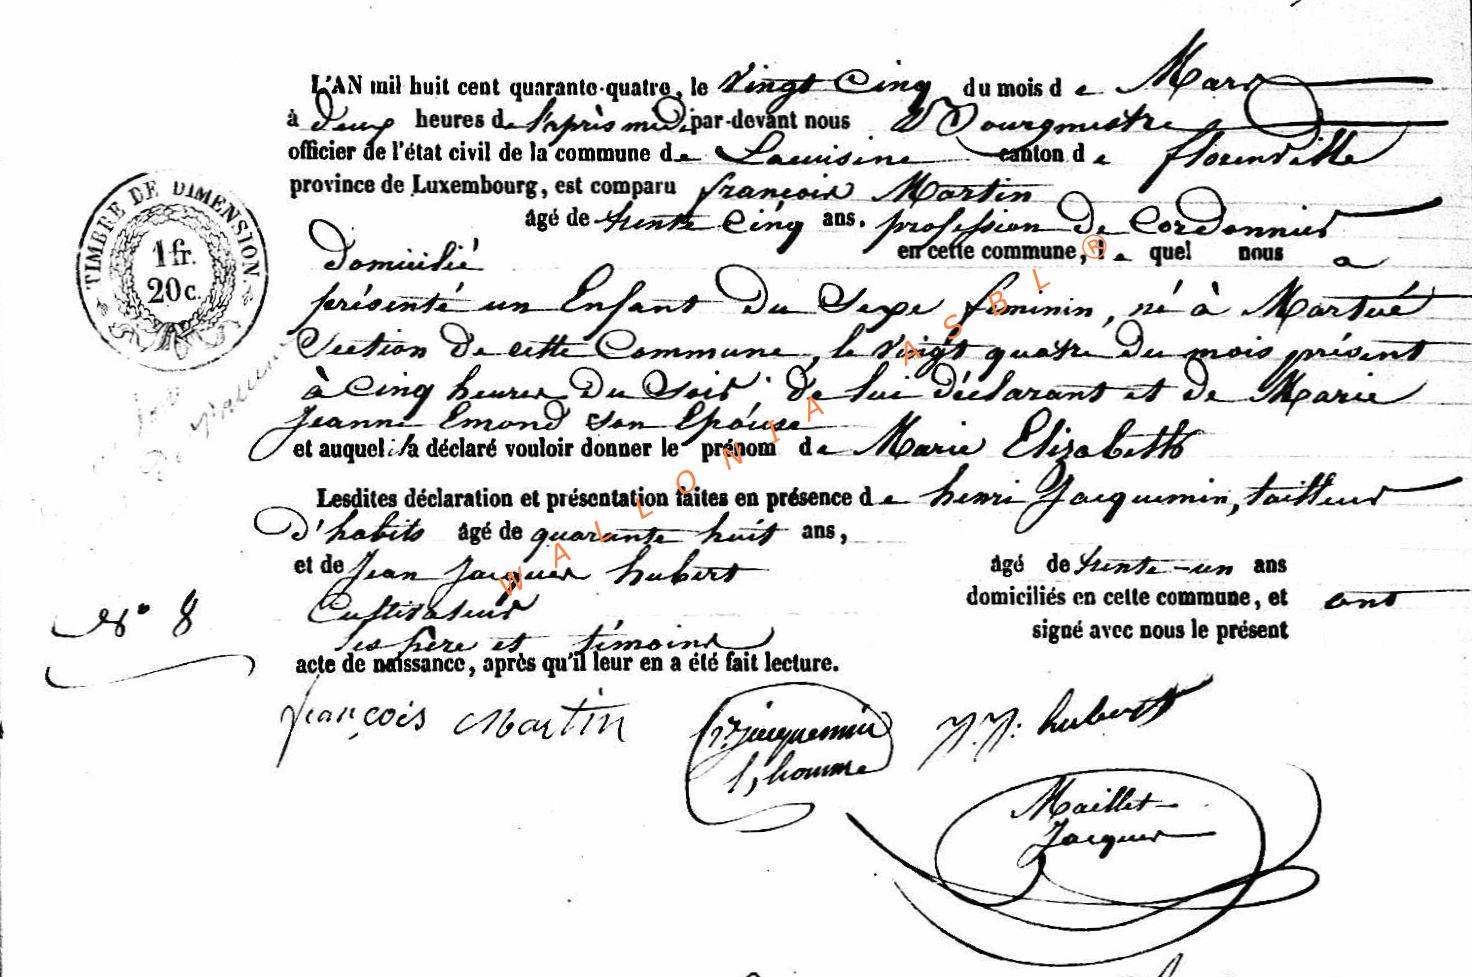 L'AN mil huit cent quarante-quatre, le vingt Cinq du mois de Mars
à deux heures de l'après midi par-devant nous Bourgmestre
officier de l'état civil de la commune de Lacuisine canton de florenville
province de Luxembourg, est comparu françois Martin
âgé de trente Cinq ans. profession de Cordonnier
domicilié en cette commune, le quel nous a
présenté un Enfant du Sexe féminin, né à Martué
Section de cette Commune, le vingt quatre du mois présent
à Cinq heures du Soir de lui déclarant et de Marie
Jeanne Emond son Epouse
et auquel il a déclaré vouloir donner le prénom de Marie Elizabeth
Lesdites déclaration et présentation faites en présence de henri Jacquemin, tailleur
d'habits âgé de quarante huit ans,
et de Jean Jacques hubert âgé de trente-un ans
Cultivateur domiciliés en cette commune, et ont
les père et témoins signé avec nous le présent
acte de naissance, après qu'il leur en a été fait lecture.
N° 8
TIMBRE DE DIMENSION
1 fr.
20 c.
françois Martin
Jacquemin
l'homme
J. J. hubert
Maillet
Jacques
WALLONIA ASBL ®